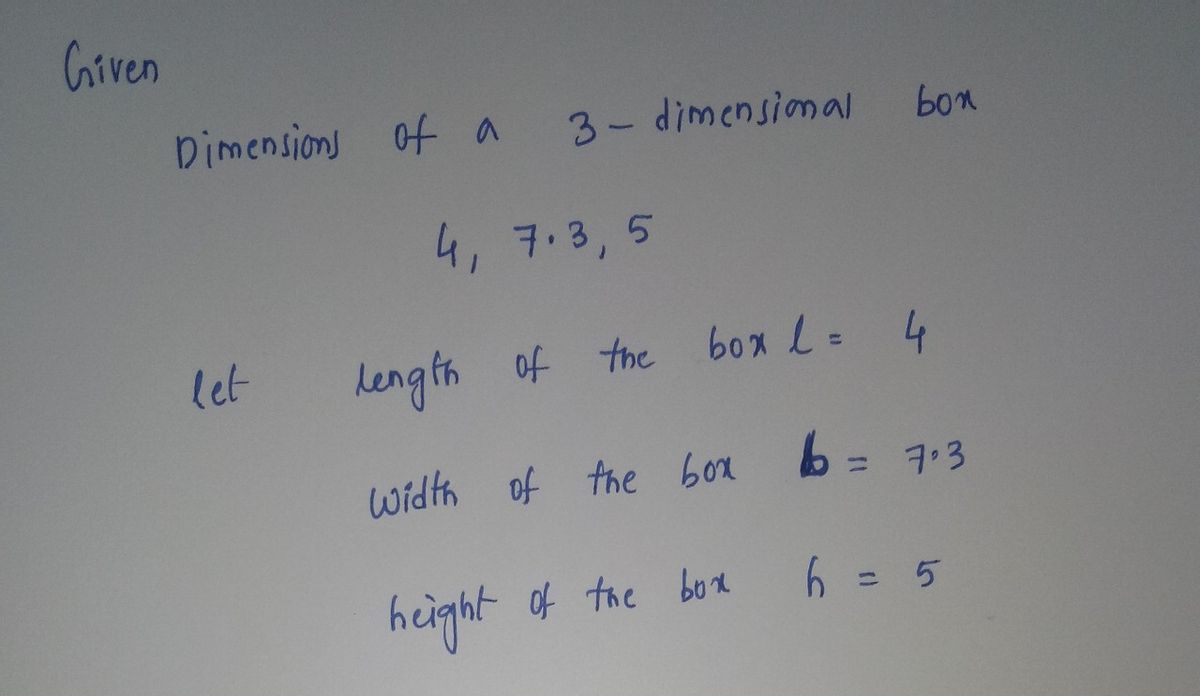 Given
Dimensions of a 3-dimensional box
4, 7.3, 5
let length of the box l = 4
width of the box b = 7.3
height of the box h = 5